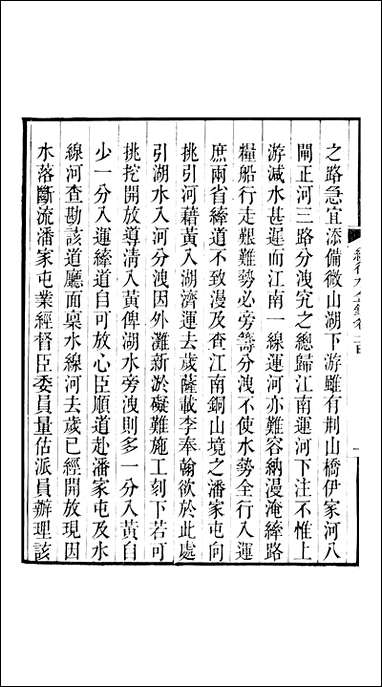 之路急宜添備微山湖下游雖有荆山橋伊家河八
閘正河三路分洩究之總歸江南運河下注不惟上
游減水甚遲而江南一線運河亦難容納漫淹縴路
糧船行走艱難勢必旁籌分洩不使水勢全行入運
庶兩省縴道不致漫及查江南銅山境之潘家屯向
挑引河藉黃入湖濟運去歲薩載李奉翰欲於此處
引湖水入河分洩因外灘新淤礙難施工刻下若可
挑挖開放導清入黃俾湖水旁洩則多一分入黃自
少一分入運縴道自可放心臣順道赴潘家屯及水
線河查勘該道廳面稟水線河去歲已經開放現因
水落斷流潘家屯業經督臣委員量估派員辦理該
續行水金鑑卷一百